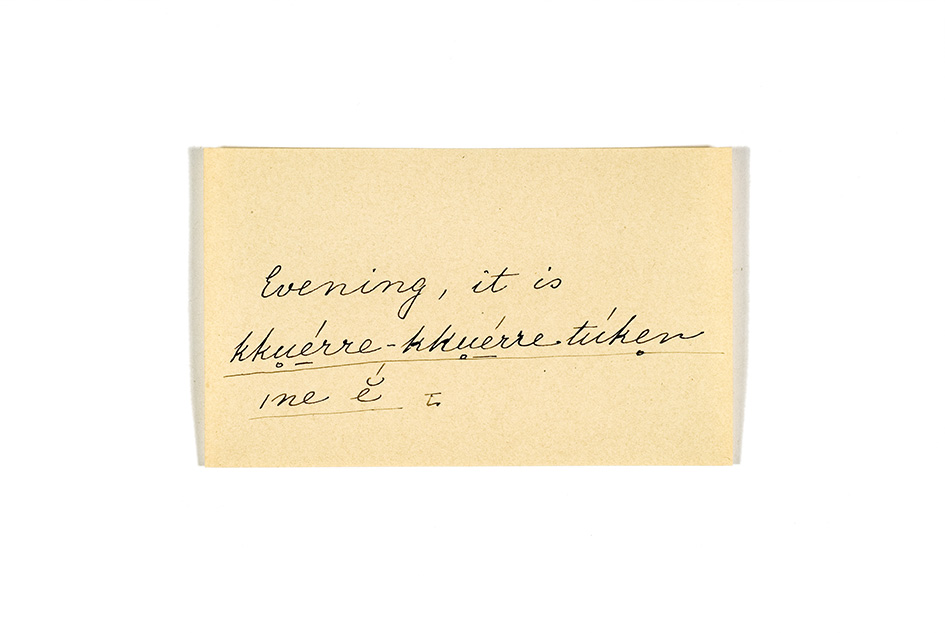 Evening, it is
kku̥érre-kku̥érre túke̥n
ine ĕ́ I